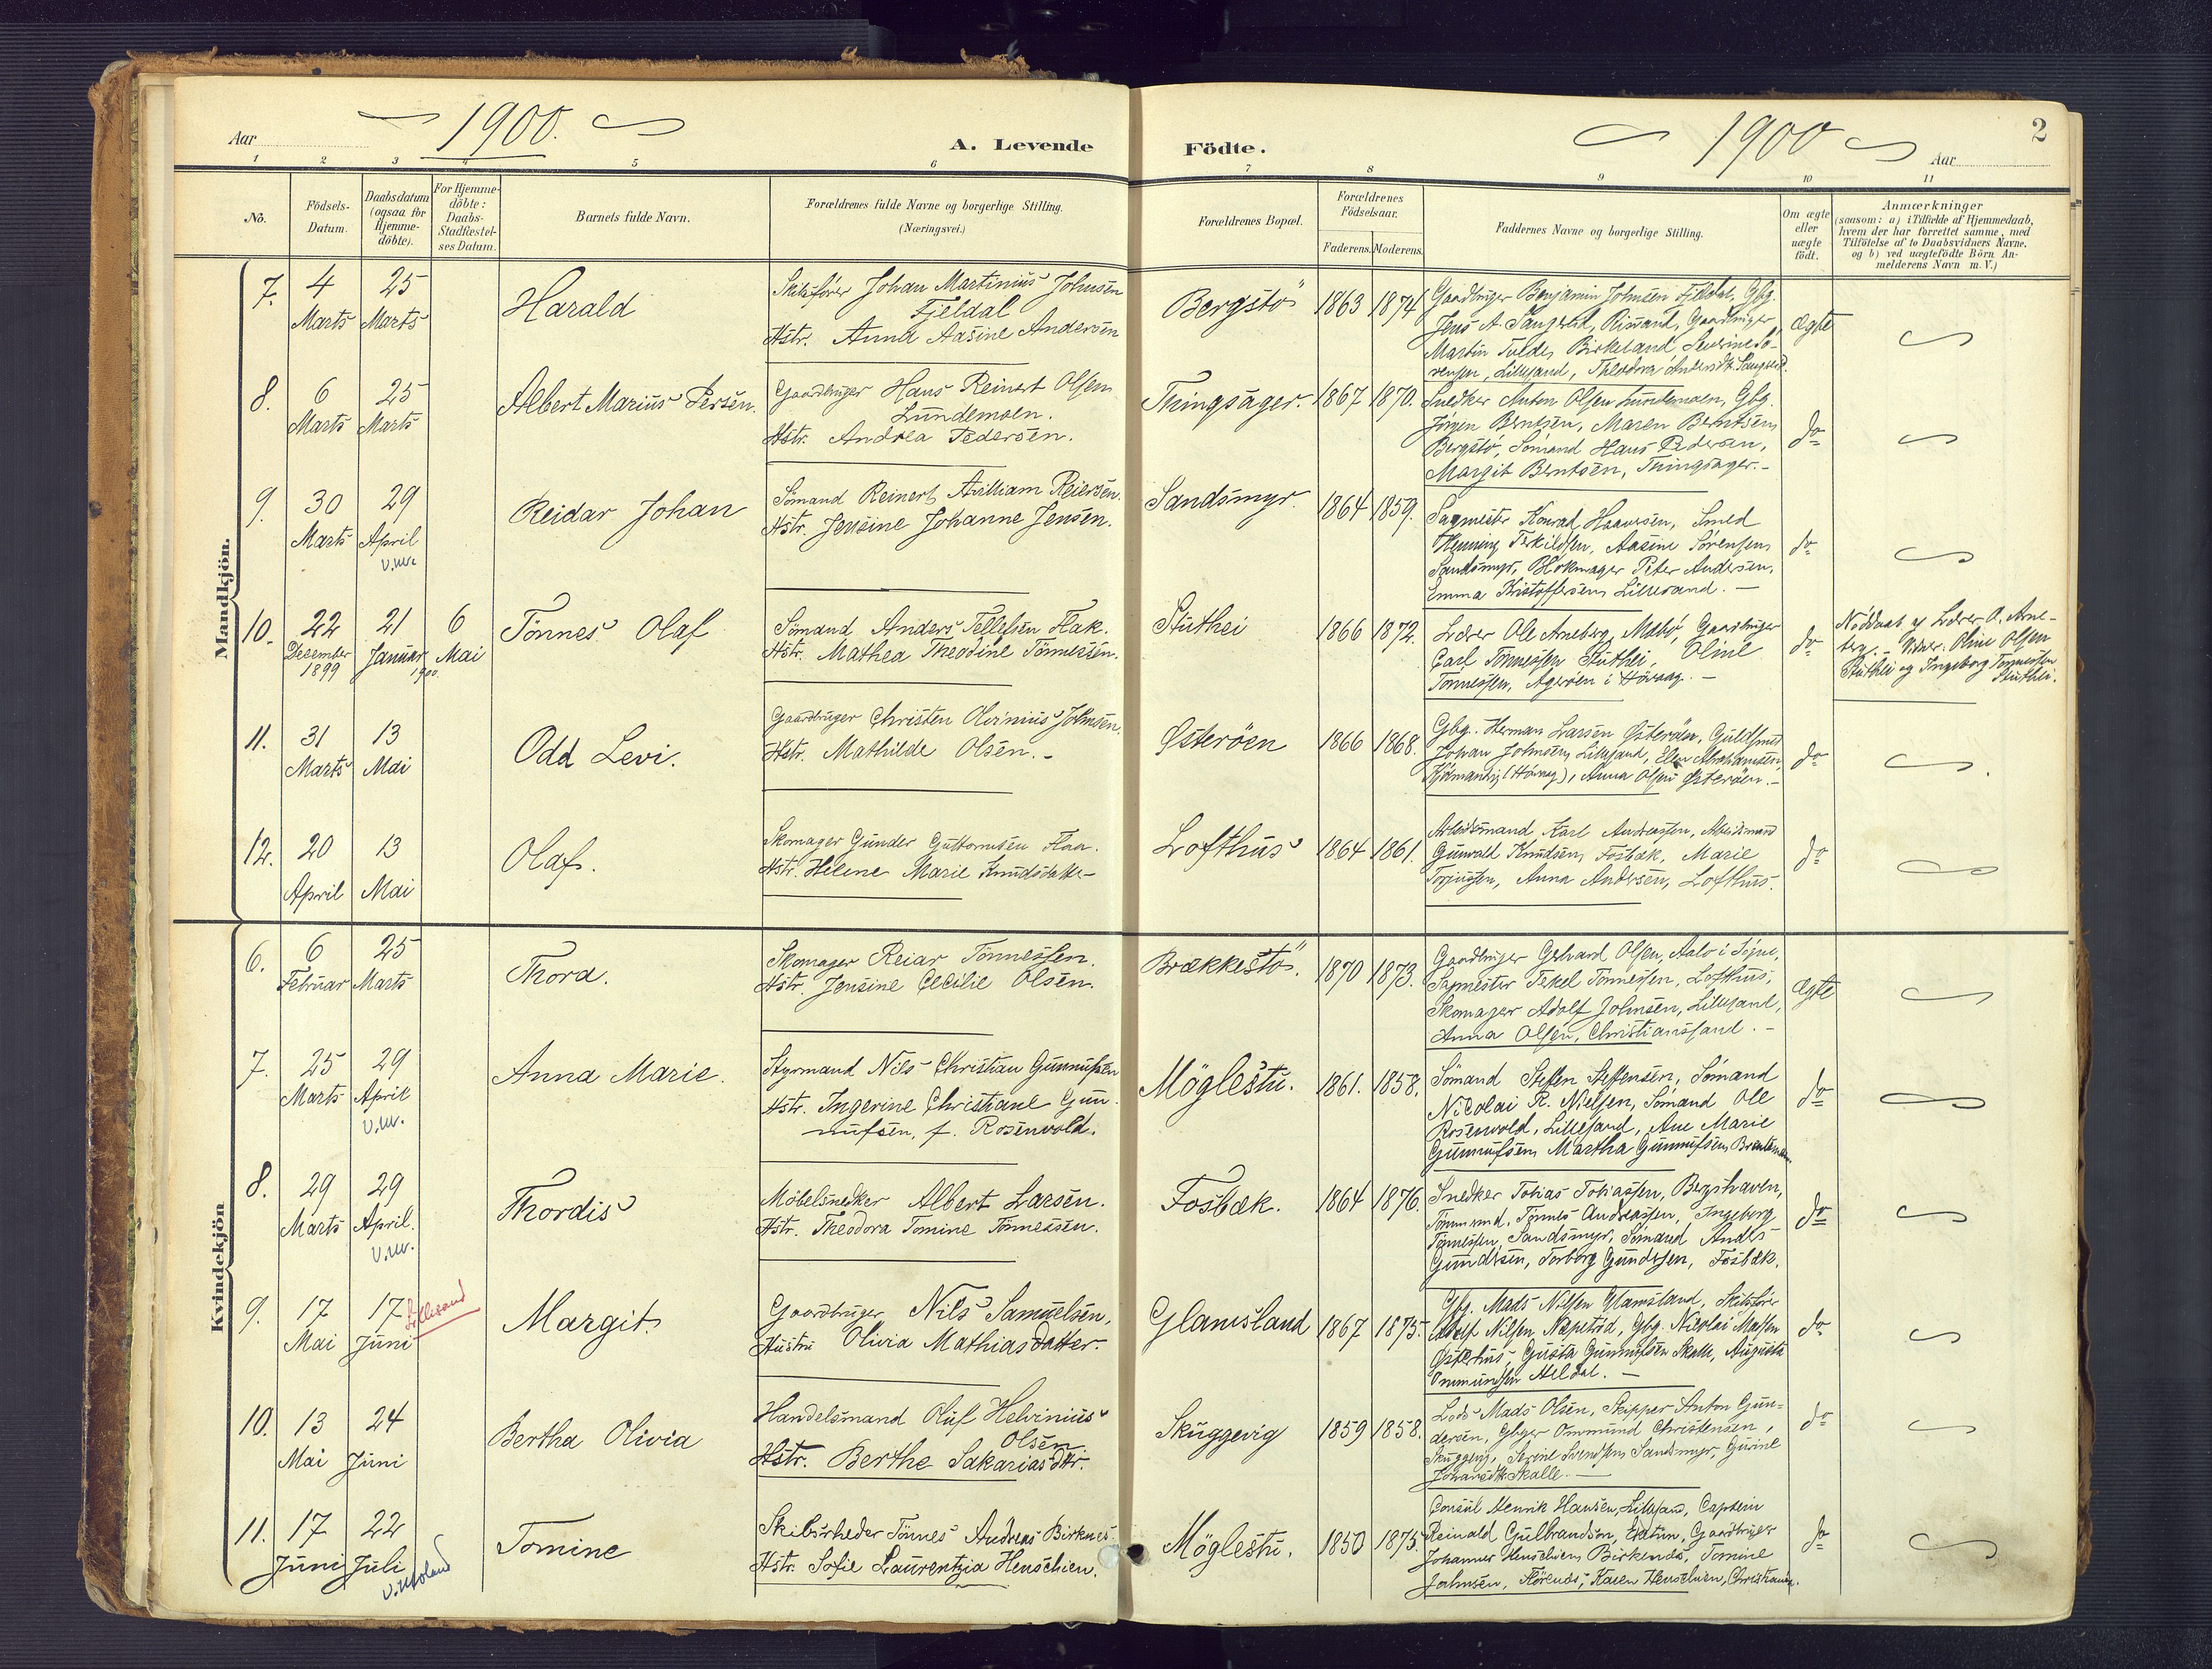 Aar 1900. A. Levende Födte. 1900 Aar 2
1 2 3 4 5 6 7 8 9 10 11
No.
Födsels-
Datum.
Daabsdatum
(ogsaa for
Hjemme-
döbte).
For Hjemme-
döbte:
Daabs-
Stadfæstel-
ses Datum.
Barnets fulde Navn.
Forældrenes fulde Navne og borgerlige Stilling.
(Næringsvei.)
Forældrenes Bopæl.
Forældrenes
Födselsaar.
Faderens. Moderens.
Faddernes Navne og borgerlige Stilling.
Om ægte
eller
uægte
födt.
Anmærkninger
(saasom: a) i Tilfælde af Hjemmedaab,
hvem der har forrettet samme, med
Tilföielse af to Daabsvidners Navne,
og b) ved uægtefödte Börn An-
melderens Navn m. V.)
Mandkjön.
7.
4
Marts
25
Marts
Harald
Skibsfører Johan Martinius Johnsen
Fjeldal
Hstr. Anna Aasine Andersen
Bergstö
1863
1874
Gaardbruger Benjamin Johnsen Fjeldal, Gbg.
Jens A. Gaardbruger
Martin Birkeland, Severine Sö-
rensen, Lillesand, Theodora
ægte
8.
6
Marts
25
Marts
Albert Marius Persen.
Gaardbruger Hans Reinert Olsen
Lundemoen.
Hstr. Andrea Pedersen.
Thingsager.
1867
1870.
Snedker Anton Olsen Lundemoen, Gbg.
Jörgen Berntsen, Maren Berntsen,
Bergstö, Sömand Hans Pedersen,
Margit Berntsen, Thingsager.-
do
9.
30
Marts
29
April
v.m.
Reidar Johan
Sömand Reinert William Reiersen.
Hstr. Jensine Johanne Jensen.
Sandsmyr.
1864
1859.
Sagmester Konrad Smed
Henning Terkildsen, Aasine Sørensen,
Sandsmyr, Blokmager Peter Andersen,
Emma Kristoffersen, Lillesand.-
do
10.
22
December
1899
21
Januar
1900.
6
Mai
Tönnes Olaf
Sömand Anders Tellefsen Flak.
Hstr. Mathea Theodine Tönnessen.
Stuthei
1866
1872.
Lærer Ole Arneberg, Gaardbruger
Carl Tönnessen Stuthei, Oline
Tönnessen, Ageröen i Hövaag.-
do
Nöddöbt af Lærer O. Arne-
berg.- Vidner: Oline Olsen
Stuthei og Ingeborg Tönnessen
Stuthei.
11.
31
Marts
13
Mai
Odd Levi.
Gaardbruger Christen Olvinius Johnsen.
Hstr. Mathilde Olsen.-
Østeröen
1866
1868.
Gbg. Herman Larsen Østeröen, Guldsmed
Johan Johnsen, Lillesand, Ellen Abrahamsen,
(Hövaag), Anna Olsen Østeröen.-
do
12.
20
April
13
Mai
Olaf.
Skomager Gunder Guttormsen Flaa.
Hstr. Helene Marie Knudsdatter-
Lofthus
1864
1861.
Arbeidsmand Karl Andreassen, Arbeidsmand
Gunvald Knudsen, Fosbæk, Marie
Torjussen, Anna Andersen, Lofthus.
do
Kvindekjön
6.
6
Februar
25
Marts
Thora.
Skomager Reiar Tönnessen.
Hstr. Jensine Cecilie Olsen.
Brækkestö.
1870
1873.
Gaardbruger Olsen, i
Sagmester Tekel Tönnessen, Lofthus,
Skomager Adolf Johnsen, Lillesand,
Anna Olsen, Christianssand.-
ægte
7.
25
Marts
29
April
v.m.
Anna Marie.
Styrmand Nils Christian Gunnufsen
Hstr. Ingerine Christiane Gun-
nufsen, f. Rosenvold.
Möglestu.
1861.
1858.
Sömand Steffen Steffensen, Sömand
Nicolai R. Nielsen, Sömand Ole
Rosenvold, Lillesand, Ane Marie
Gunnufsen, Martha Gunnufsen,
do
8.
29
Marts
29
April.
v.m.
Thordis
Möbelsnedker Albert Larsen.
Hstr. Theodora Tomine Tönnessen.
Fosbæk.
1864
1876.
Snedker Tobias Tobiassen, Bergshaven,
Tömmermd. Tönnes Andreassen, Ingeborg
Tönnessen, Sandsmyr, Sömand Anders
Gundersen, Torborg Gundersen, Fosbæk.
do
9.
17
Mai
17
Juni
Lillesand
Margit.
Gaardbruger Nils Samuelsen,
Hustru Olivia Mathiasdatter.
Glamsland
1867
1875.
Gbg. Mads Nilsen Glamsland, Skibsför.
Adolf Nilsen, Gbg. Nicolai
Østerhus, Gusta Gunnufsen Skalle, Augusta
Ommundsen Heldal.-
do
10.
13
Mai
24
Juni
Bertha Olivia
Handelsmand Oluf Helvinius
Olsen
Hstr. Berthe Sakariasdtr.
Skuggevig
1859
1858.
Lods Mads Olsen, Skipper Anton Gun-
dersen, Gbger Ommund Christensen,
Skuggevig, Serine Svendsen Sandsmyr, Gurine
Skalle.-
do
11.
17
Juni
22
Juli
Tomine
Skibsrheder Tönnes Andreas Birknes
Hstr. Sofie Laurentzia Henschien.
Möglestu.
1850
1875.
Consul Henrik Hansen, Lillesand, Captein
Reinald Gulbrandson, Gaardbruger
Johannes Henschien, Birkenæs, Tomine
Johnsen, Karen Henschien, Christiania.
do